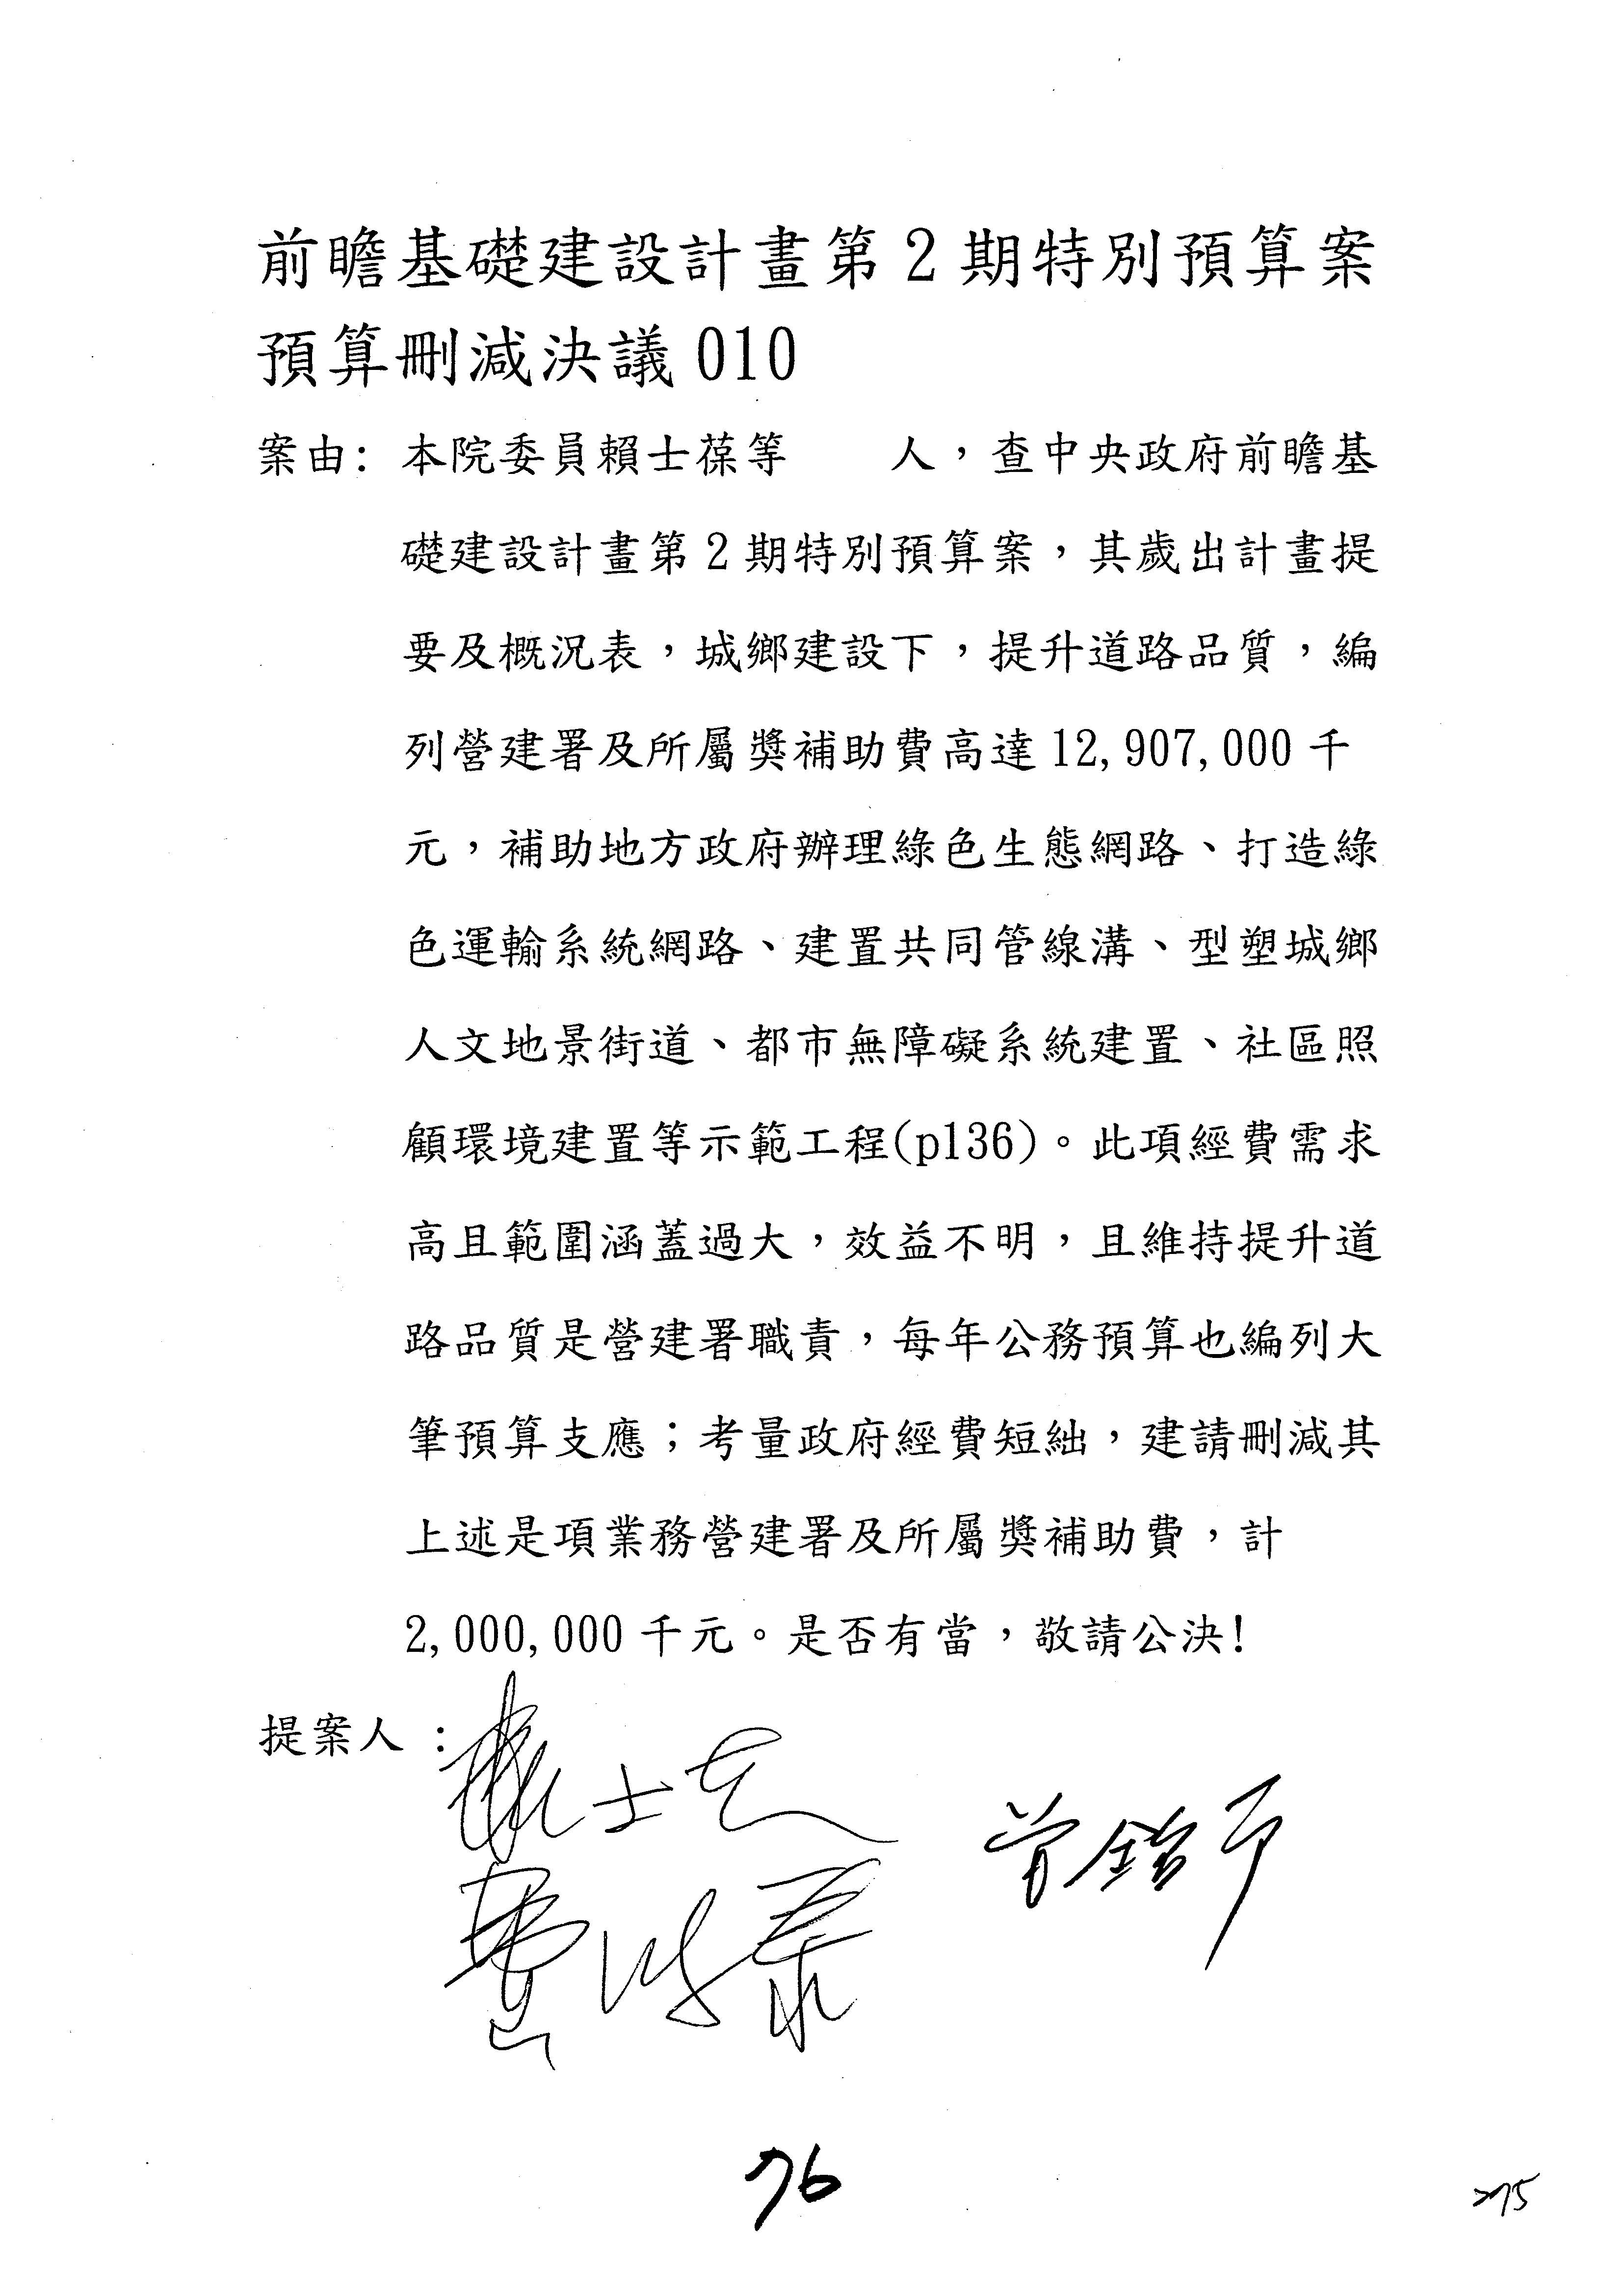 前瞻基礎建設計畫第2期特別預算案
預算刪減決議010
案由：本院委員賴士葆等　　人，查中央政府前瞻基
礎建設計畫第2期特別預算案，其歲出計畫提
要及概況表，城鄉建設下，提升道路品質，編
列營建署及所屬獎補助費高達12,907,000千
元，補助地方政府辦理綠色生態網路、打造綠
色運輸系統網路、建置共同管線溝、型塑城鄉
人文地景街道、都市無障礙系統建置、社區照
顧環境建置等示範工程(p136)。此項經費需求
高且範圍涵蓋過大，效益不明，且維持提升道
路品質是營建署職責，每年公務預算也編列大
筆預算支應；考量政府經費短絀，建請刪減其
上述是項業務營建署及所屬獎補助費，計
2,000,000千元。是否有當，敬請公決!
提案人：
76
275